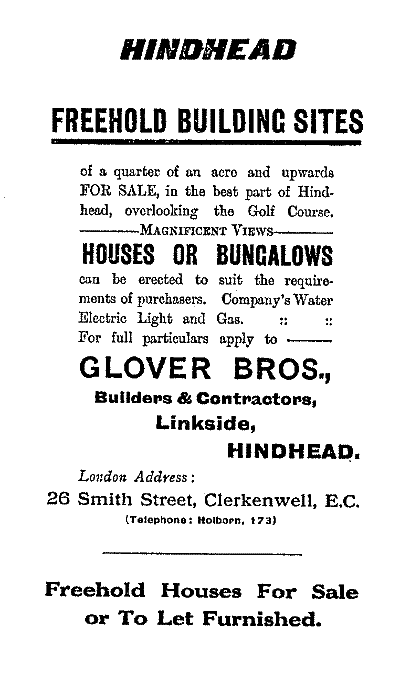 HINDHEAD
FREEHOLD BUILDING SITES
of a quarter of an acre and upwards
FOR SALE, in the best part of Hind-
head, overlooking the Golf Course.
MAGNIFICENT VIEWS
HOUSES OR BUNGALOWS
can be erected to suit the require-
ments of purchasers. Company's Water
Electric Light and Gas. :: ::
For full particulars apply to
GLOVER BROS.,
Builders & Contractors,
Linkside,
HINDHEAD.
London Address:
26 Smith Street, Clerkenwell, E.C.
(Telephone: Holborn, 173)
Freehold Houses For Sale
or To Let Furnished.